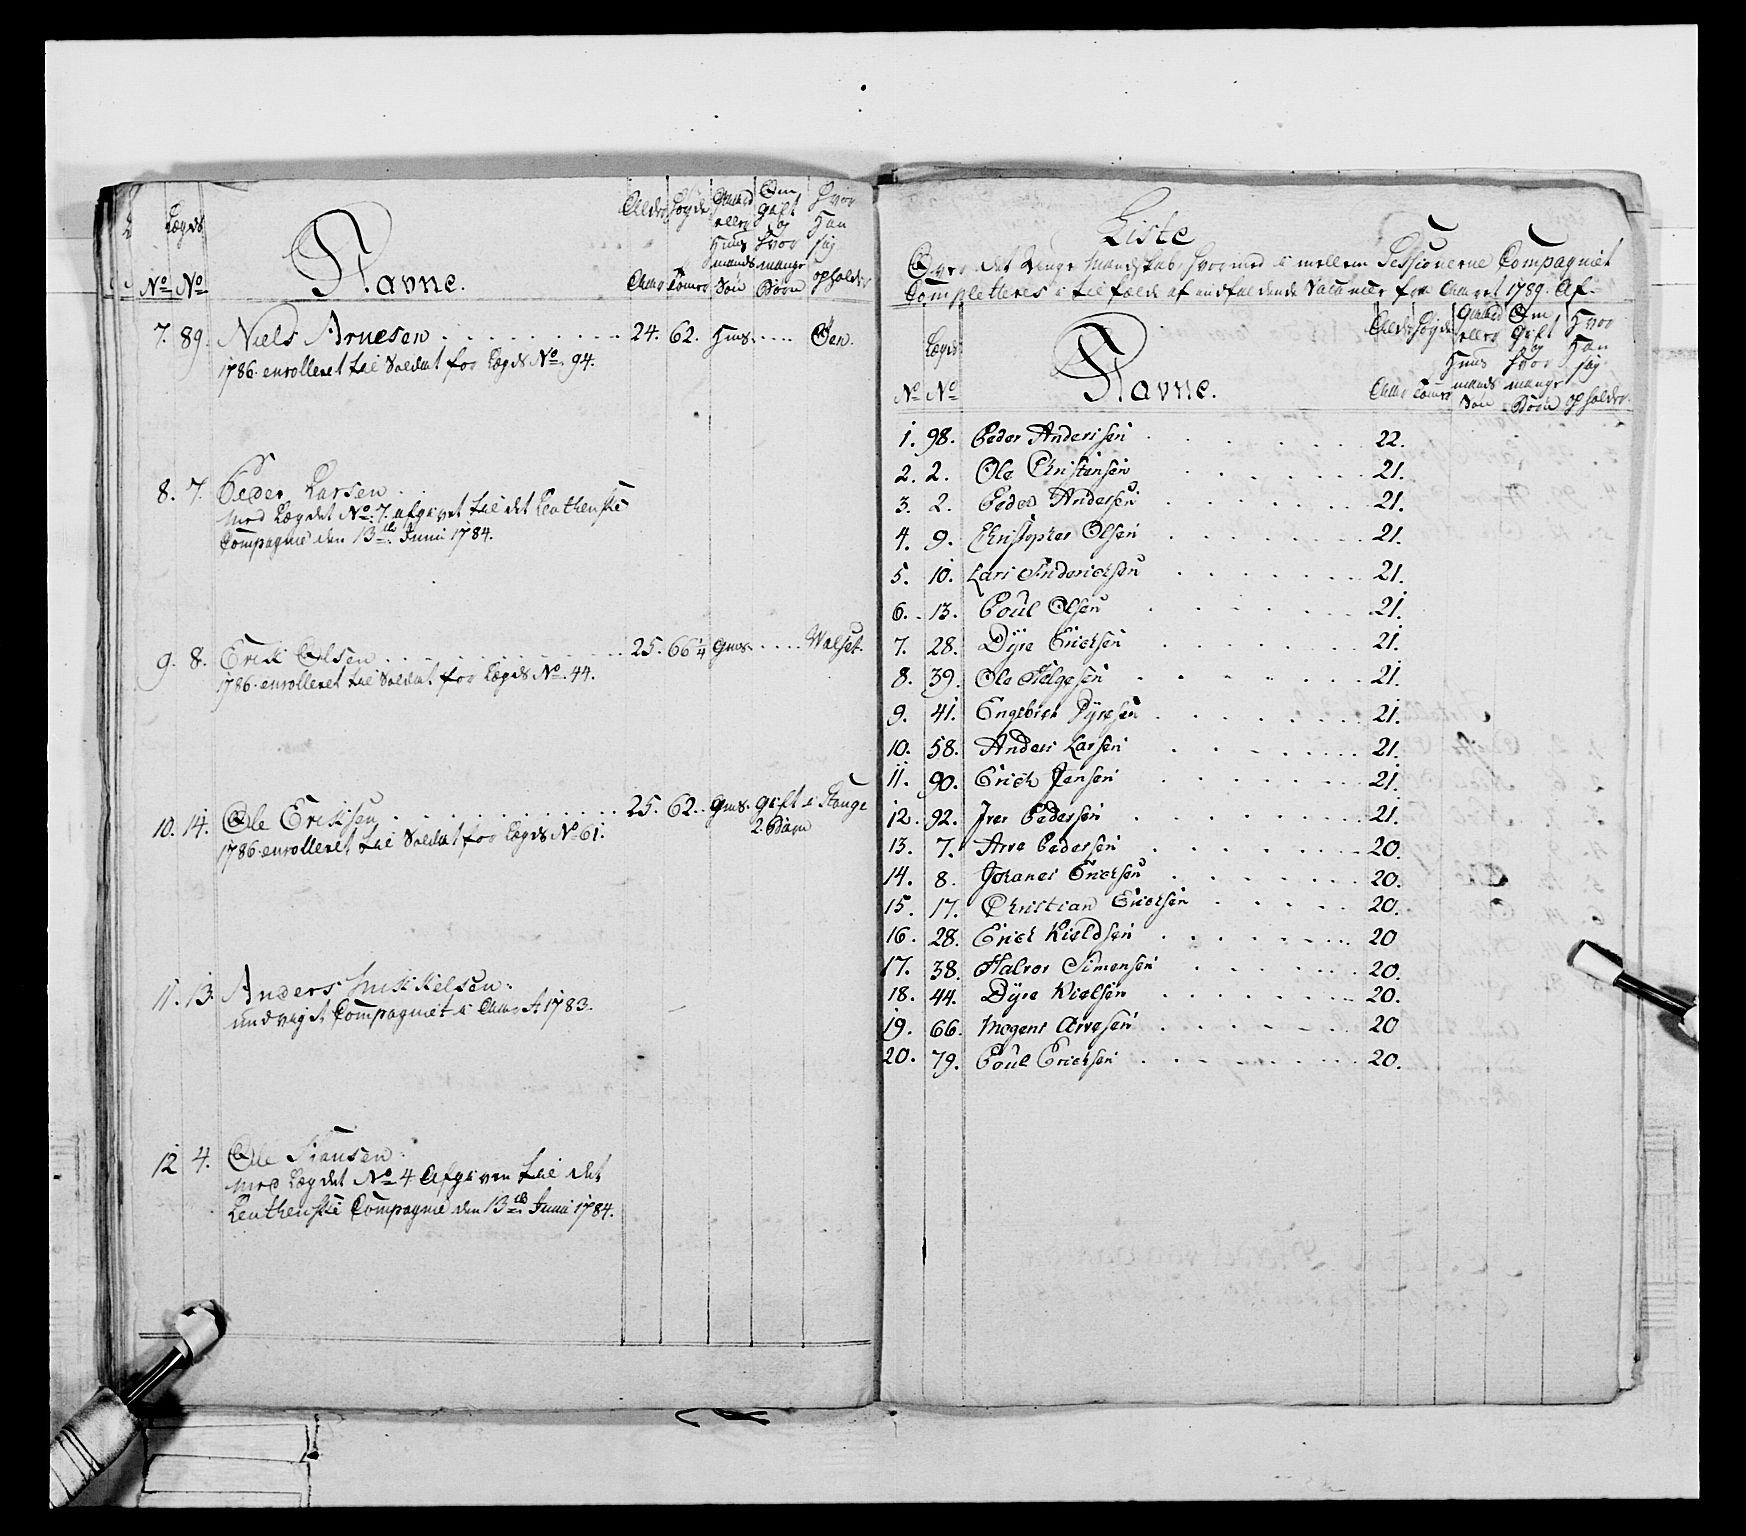 Lægds
No No
Navne.
Alder Høyde
Aar Tomer
Gaard eller Huusmands Søn
Om Gift og hvor mange Børn
Hvor Han sig opholder
7. 89. Niels Arnesen 24. 62. Huus. Øen.
1786 enrolleret til Soldat for Lægds No 94.
8. 7. Peder Larsen
Med Lægdet No 7. afgivet til det Leuthenske
Compagnie den 13de Junii 1784.
9. 8. Erik Olsen 25. 66 1/4 Gms. Walset.
1786 enrolleret til Soldat for Lægds No 44.
10. 14. Ole Eriksen 25. 62. Gms. gift i Stange
2 Børn
1786 enrolleret til Soldat for Lægds No 61.
11. 13. Anders Mikkelsen.
undvigt Compagniet i Aaret 1783.
12 4. Ole Hansen
Med Lægdet No 4 Afgiven til det
Leuthenske Compagnie den 13de Junii 1784.
Liste
Over det Unge Mandskab, hvormed i mellem Sessionerne Compagniet
Completteres i til fælde af indfaldende Vacancer for Aaret 1789. Af
Lægds
No No
Navne.
Alder Høyde
Aar Tomer
Gaard eller Huusmands Søn
Om Gift og hvor mange Børn
Hvor Han sig opholder.
1. 98. Peder Andersen 22.
2. 2. Ole Christensen 21.
3. 2. Peder Andersen 21.
4. 9. Christopher Olsen 21.
5. 10. Lars Friderichsen 21.
6. 13. Poul Olsen 21.
7. 28. Dyre Erichsen 21.
8. 39. Ole Helgesen 21.
9. 41. Engebret Dyresen 21.
10. 58. Anders Larsen 21.
11. 90. Erich Jensen 21.
12. 92. Iver Pedersen 21.
13. 7. Arve Pedersen 20.
14. 8. Johanes Erichsen 20.
15. 17. Christian Erichsen 20.
16. 28. Erich Kieldsen 20
17. 38. Halvor Simensen 20.
18. 44. Dyre Kielsen 20.
19. 66. Mogens Arvesen 20
20. 79. Poul Erichsen 20.